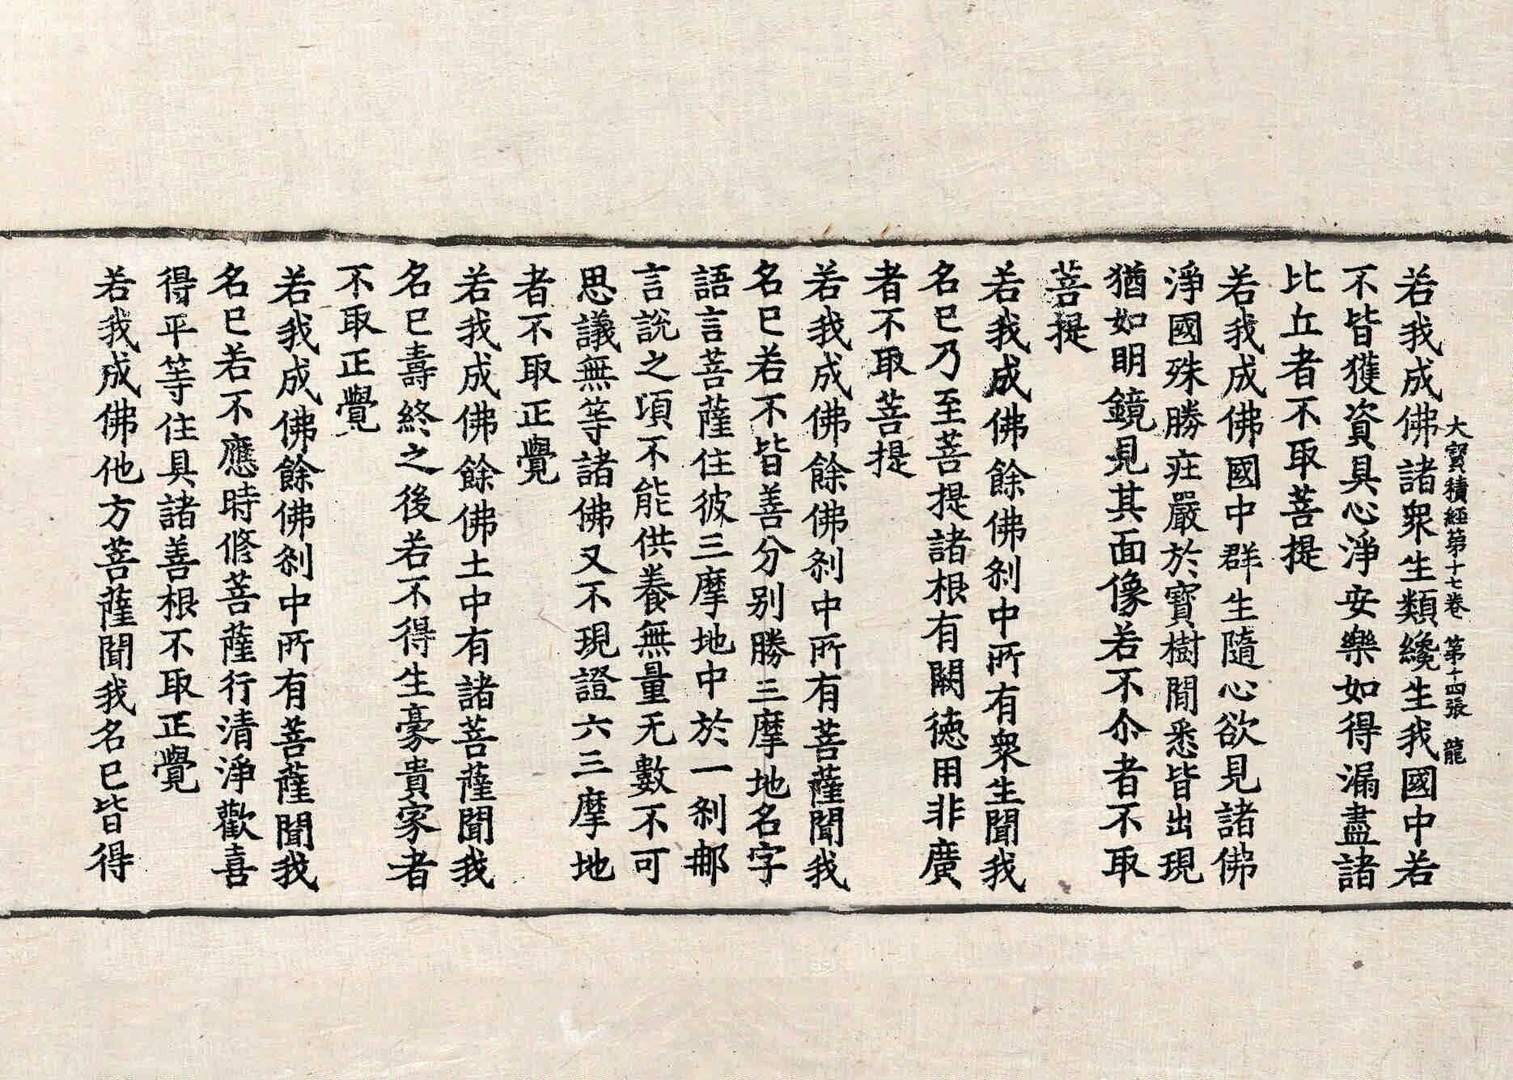 大寶積經第十七卷 第十四張 龍
若我成佛諸衆生類纔生我國中若
不皆獲資具心淨安樂如得漏盡諸
比丘者不取菩提
若我成佛國中群生隨心欲見諸佛
淨國殊勝疘嚴於寶樹閒悉皆出現
猶如明鏡見其面像若不尒者不取
菩提
若我成佛餘佛刹中所有衆生聞我
名已乃至菩提諸根有闕德用非廣
者不取菩提
若我成佛餘佛刹中所有菩薩聞我
名已若不皆善分别勝三摩地名字
語言菩薩住彼三摩地中於一刹郍
言說之項不能供養無量无數不可
思議無等諸佛又不現證六三摩地
者不取正覺
若我成佛餘佛土中有諸菩薩聞我
名已壽終之後若不得生豪貴家者
不取正覺
若我成佛餘佛刹中所有菩薩聞我
名已若不應時修菩薩行清淨歡喜
得平等住具諸善根不取正覺
若我成佛他方菩薩聞我名已皆得